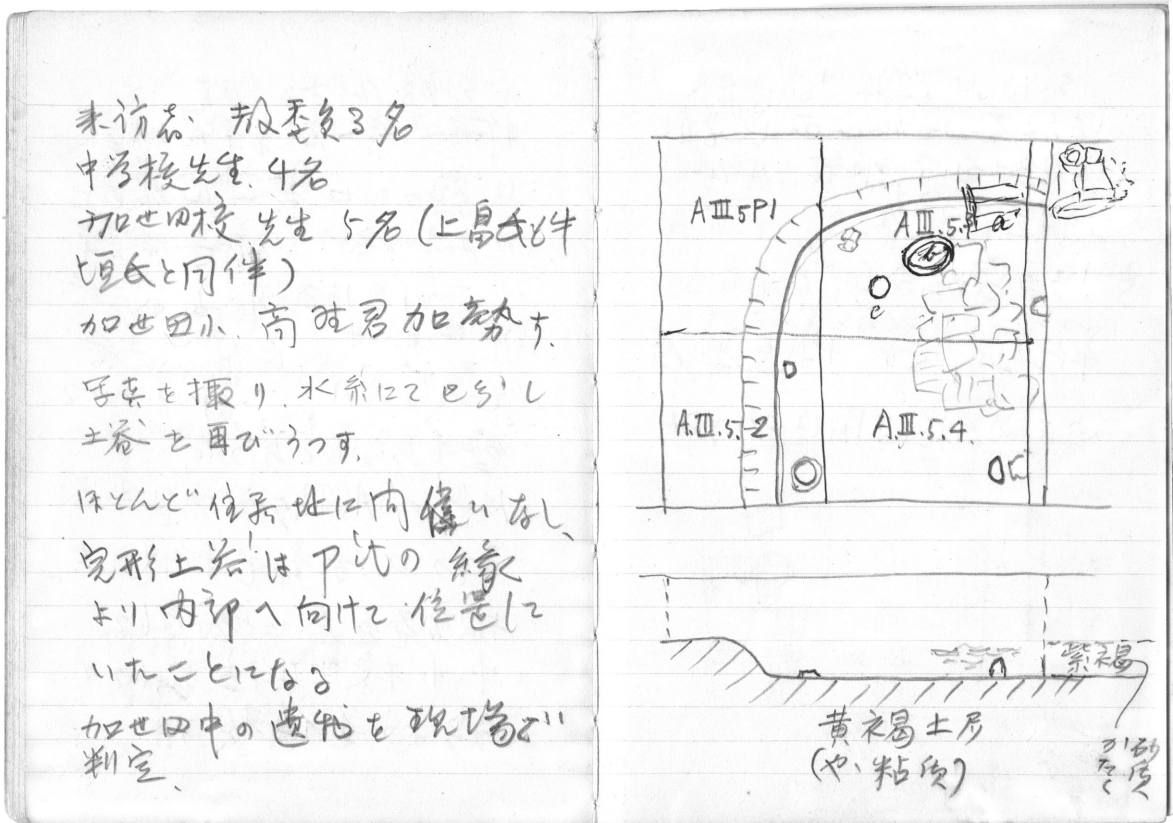 来訪者 教委員3名
中学校先生、4名
加世田校、先生 5名(上畠氏と牛
垣氏と同伴)
加世田小、高野君加勢す、
写真を撮り、水糸にて区分し
土器を再びうつす、
ほとんど住居址に間違いなし、
完形土器はPitの縁
より内部へ向けて位置して
いたことになる
加世田中の遺物を現場で
判定、
AⅢ5P1
AⅢ.5.
a
b
c
A.Ⅲ.5.2
A.Ⅲ.5.4.
紫褐
黄褐土層
(やゝ粘質)
砂質
かたく